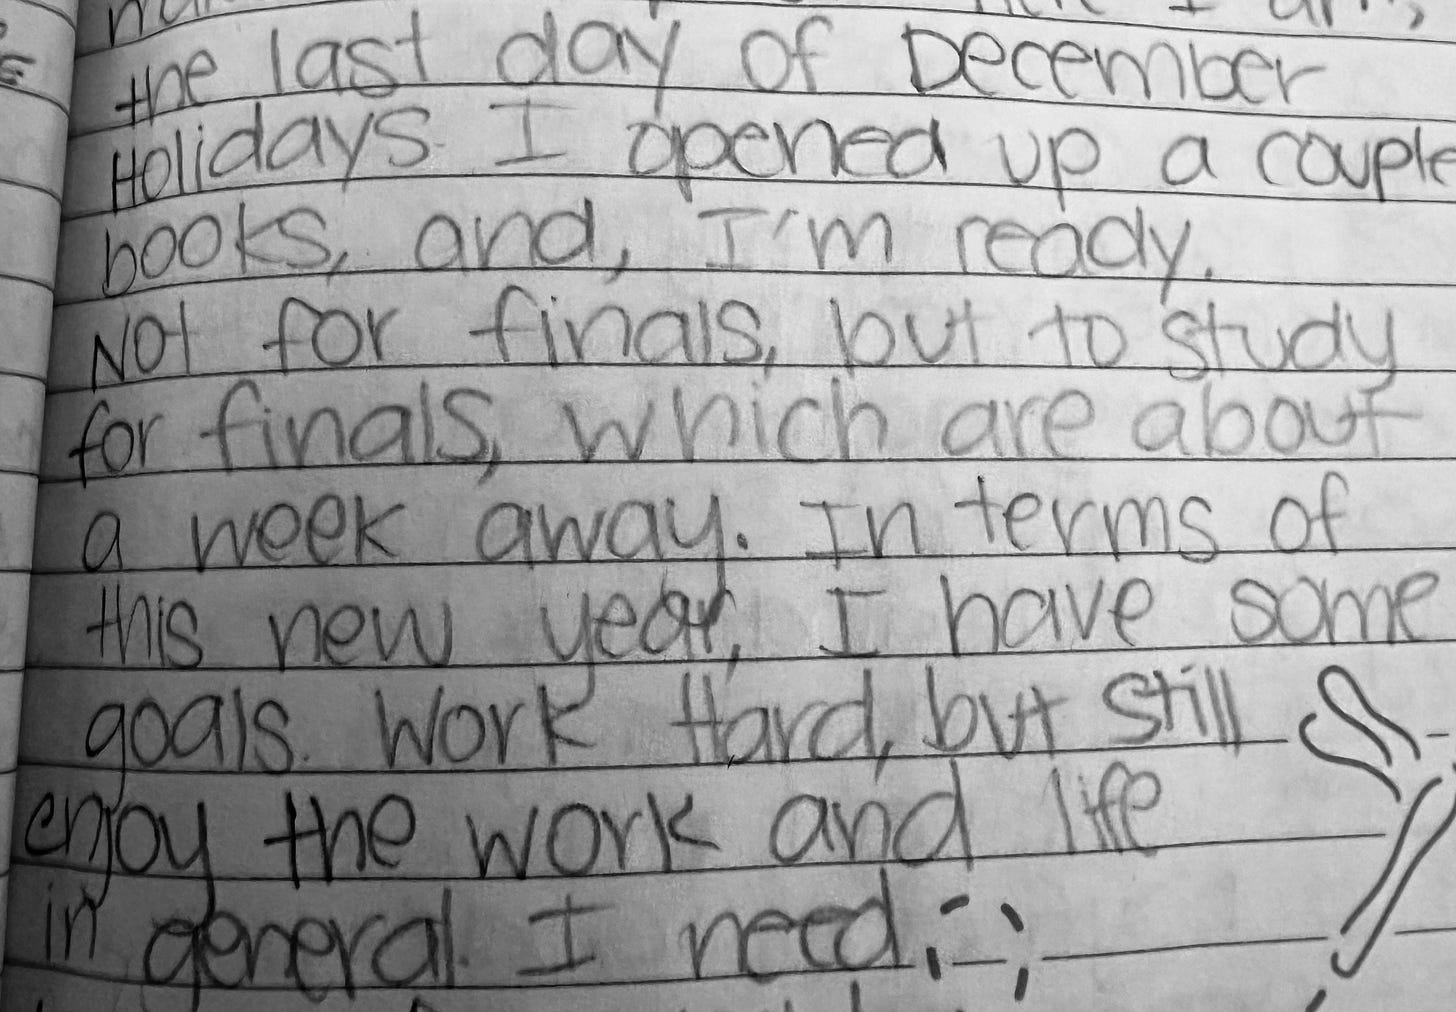 the last day of December
Holidays. I opened up a couple
books, and, I'm ready.
Not for finals, but to study
for finals, which are about
a week away. In terms of
this new year, I have some
goals. Work Hard, but still
enjoy the work and life
in general. I need